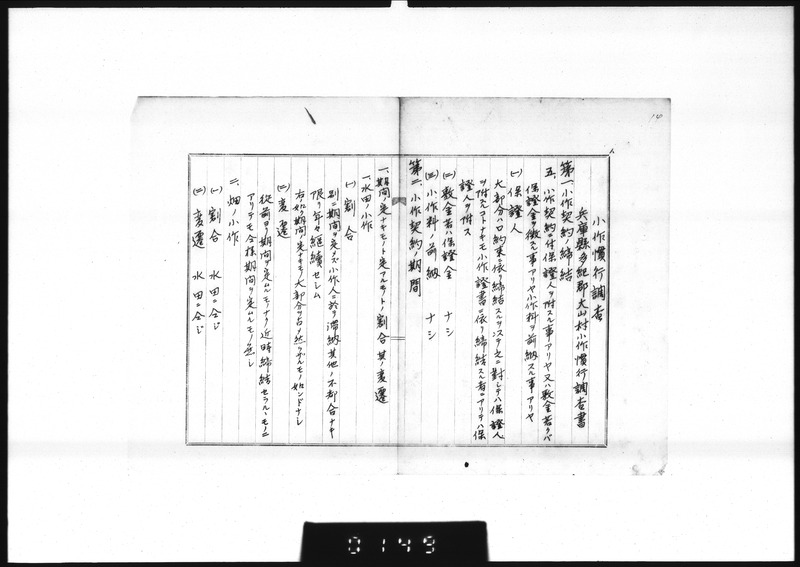 小作慣行調査
兵庫縣多紀郡大山村小作慣行調査書
第一、小作契約ノ締結
五、小作契約ニ付保證人ヲ附スル事アリヤ又ハ敷金若クハ
保證金ヲ徴スル事アリヤ小作料ヲ前納スル事アリヤ
(一) 保證人
大部分ハ口約束ニ依リ締結スルヲ以テ之ニ對シテハ保證人
ヲ附スコトナキモ小作證書ニ依リ締結スル者ニアリテハ保
證人ヲ附ス
(二) 敷金若ハ保證金 ナシ
(三) 小作料ノ前納 ナシ
第二、小作契約ノ期間
一、期間ノ定ナキモノト定アルモノトノ割合其ノ変遷
一、水田ノ小作
(一) 割合
別ニ期間ヲ定メズ小作人ニ於テ滞納其他ノ不都合ナキ
限リ年々継續セシム
右ノ如ク期間ノ定ナキモノ大部分ヲ占メ然ラザルモノ殆ンドナシ
(二) 変遷
従前ヨリ期間ヲ定ムルモノナク近時締結セラルヽモノニ
アリテモ仝様期間ヲ定ムルモノ無シ
二、畑ノ小作
(一) 割合 水田ニ仝ジ
(二) 変遷 水田ニ仝ジ
0149